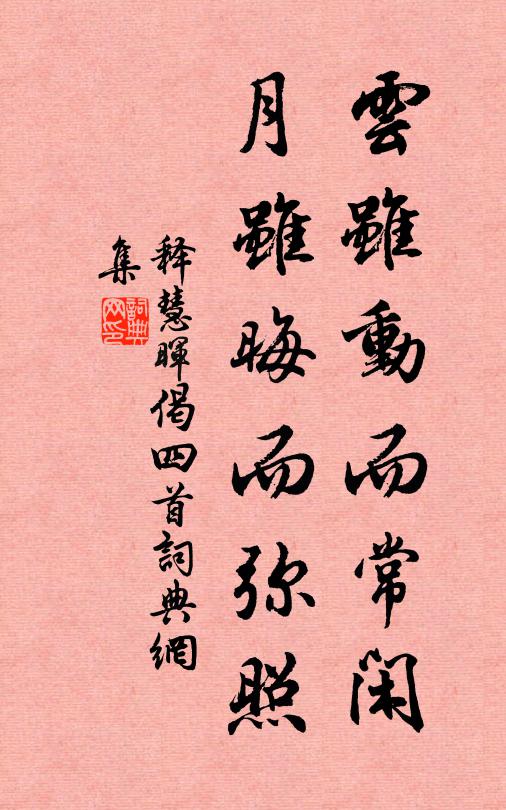 雲雖動而常閑
月雖晦而弥照
释慧暉偈四首詞典網
集
詞典
网印